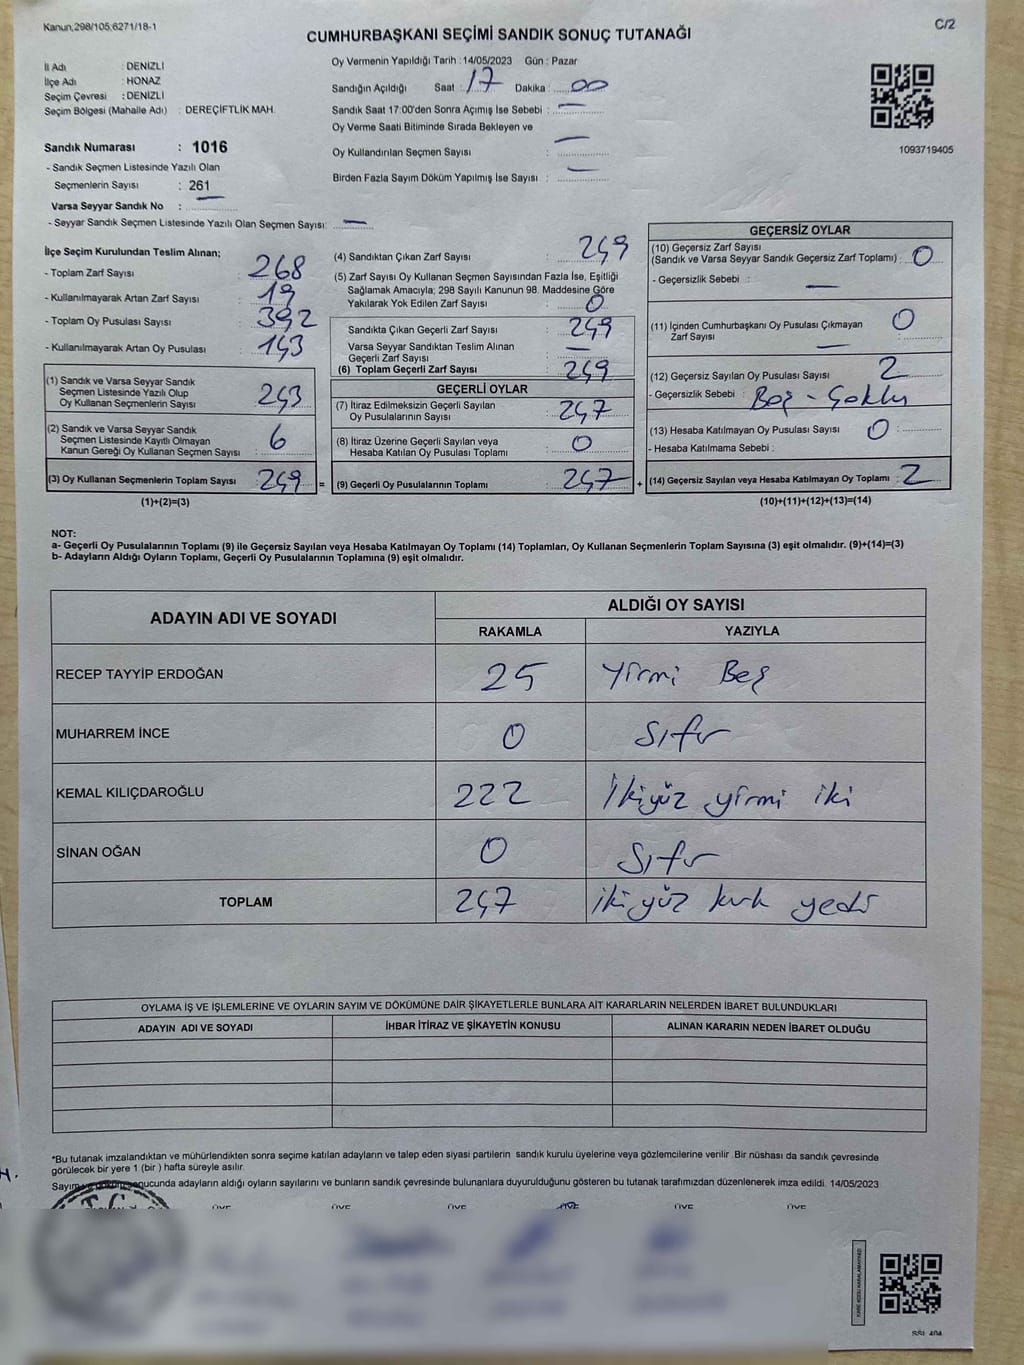 Kanun;298/105;6271/18-1
C/2
CUMHURBAŞKANI SEÇİMİ SANDIK SONUÇ TUTANAĞI
İl Adı : DENİZLİ
İlçe Adı : HONAZ
Seçim Çevresi : DENİZLİ
Seçim Bölgesi (Mahalle Adı) : DEREÇİFTLİK MAH.
Sandık Numarası : 1016
- Sandık Seçmen Listesinde Yazılı Olan
Seçmenlerin Sayısı : 261
Varsa Seyyar Sandık No : —
- Seyyar Sandık Seçmen Listesinde Yazılı Olan Seçmen Sayısı: —
Oy Vermenin Yapıldığı Tarih : 14/05/2023 Gün : Pazar
Sandığın Açıldığı Saat : 17 Dakika : 00
Sandık Saat 17:00'den Sonra Açımış İse Sebebi : —
Oy Verme Saati Bitiminde Sırada Bekleyen ve
Oy Kullandırılan Seçmen Sayısı : —
Birden Fazla Sayım Döküm Yapılmış İse Sayısı : —
1093719405
İlçe Seçim Kurulundan Teslim Alınan;
- Toplam Zarf Sayısı : 268
- Kullanılmayarak Artan Zarf Sayısı : 19
- Toplam Oy Pusulası Sayısı : 392
- Kullanılmayarak Artan Oy Pusulası : 143
(1) Sandık ve Varsa Seyyar Sandık
Seçmen Listesinde Yazılı Olup
Oy Kullanan Seçmenlerin Sayısı : 243
(2) Sandık ve Varsa Seyyar Sandık
Seçmen Listesinde Kayıtlı Olmayan
Kanun Gereği Oy Kullanan Seçmen Sayısı : 6
(3) Oy Kullanan Seçmenlerin Toplam Sayısı : 249 =
(1)+(2)=(3)
(4) Sandıktan Çıkan Zarf Sayısı : 249
(5) Zarf Sayısı Oy Kullanan Seçmen Sayısından Fazla İse, Eşitliği
Sağlamak Amacıyla; 298 Sayılı Kanunun 98. Maddesine Göre
Yakılarak Yok Edilen Zarf Sayısı : 0
Sandıkta Çıkan Geçerli Zarf Sayısı : 249
Varsa Seyyar Sandıktan Teslim Alınan
Geçerli Zarf Sayısı : —
(6) Toplam Geçerli Zarf Sayısı : 249
GEÇERLİ OYLAR
(7) İtiraz Edilmeksizin Geçerli Sayılan
Oy Pusulalarının Sayısı : 247
(8) İtiraz Üzerine Geçerli Sayılan veya
Hesaba Katılan Oy Pusulası Toplamı : 0
(9) Geçerli Oy Pusulalarının Toplamı : 247 +
GEÇERSİZ OYLAR
(10) Geçersiz Zarf Sayısı
(Sandık ve Varsa Seyyar Sandık Geçersiz Zarf Toplamı) : 0
- Geçersizlik Sebebi : —
(11) İçinden Cumhurbaşkanı Oy Pusulası Çıkmayan
Zarf Sayısı : 0
—
(12) Geçersiz Sayılan Oy Pusulası Sayısı : 2
- Geçersizlik Sebebi : Boş - Çoklu
(13) Hesaba Katılmayan Oy Pusulası Sayısı : 0
- Hesaba Katılmama Sebebi :
(14) Geçersiz Sayılan veya Hesaba Katılmayan Oy Toplamı : 2
(10)+(11)+(12)+(13)=(14)
NOT:
a- Geçerli Oy Pusulalarının Toplamı (9) ile Geçersiz Sayılan veya Hesaba Katılmayan Oy Toplamı (14) Toplamları, Oy Kullanan Seçmenlerin Toplam Sayısına (3) eşit olmalıdır. (9)+(14)=(3)
b- Adayların Aldığı Oyların Toplamı, Geçerli Oy Pusulalarının Toplamına (9) eşit olmalıdır.
ADAYIN ADI VE SOYADI ALDIĞI OY SAYISI
RAKAMLA YAZIYLA
RECEP TAYYİP ERDOĞAN 25 Yirmi Beş
MUHARREM İNCE 0 Sıfır
KEMAL KILIÇDAROĞLU 222 İkiyüz yirmi iki
SİNAN OĞAN 0 Sıfır
TOPLAM 247 ikiyüz kırk yedi
OYLAMA İŞ VE İŞLEMLERİNE VE OYLARIN SAYIM VE DÖKÜMÜNE DAİR ŞİKAYETLERLE BUNLARA AİT KARARLARIN NELERDEN İBARET BULUNDUKLARI
ADAYIN ADI VE SOYADI İHBAR İTİRAZ VE ŞİKAYETİN KONUSU ALINAN KARARIN NEDEN İBARET OLDUĞU
*Bu tutanak imzalandıktan ve mühürlendikten sonra seçime katılan adayların ve talep eden siyasi partilerin sandık kurulu üyelerine veya gözlemcilerine verilir. Bir nüshası da sandık çevresinde
görülecek bir yere 1 (bir) hafta süreyle asılır.
Sayım ve döküm sonucunda adayların aldığı oyların sayılarını ve bunların sandık çevresinde bulunanlara duyurulduğunu gösteren bu tutanak tarafımızdan düzenlenerek imza edildi. 14/05/2023
T.C.
ÜYE ÜYE ÜYE ÜYE ÜYE ÜYE